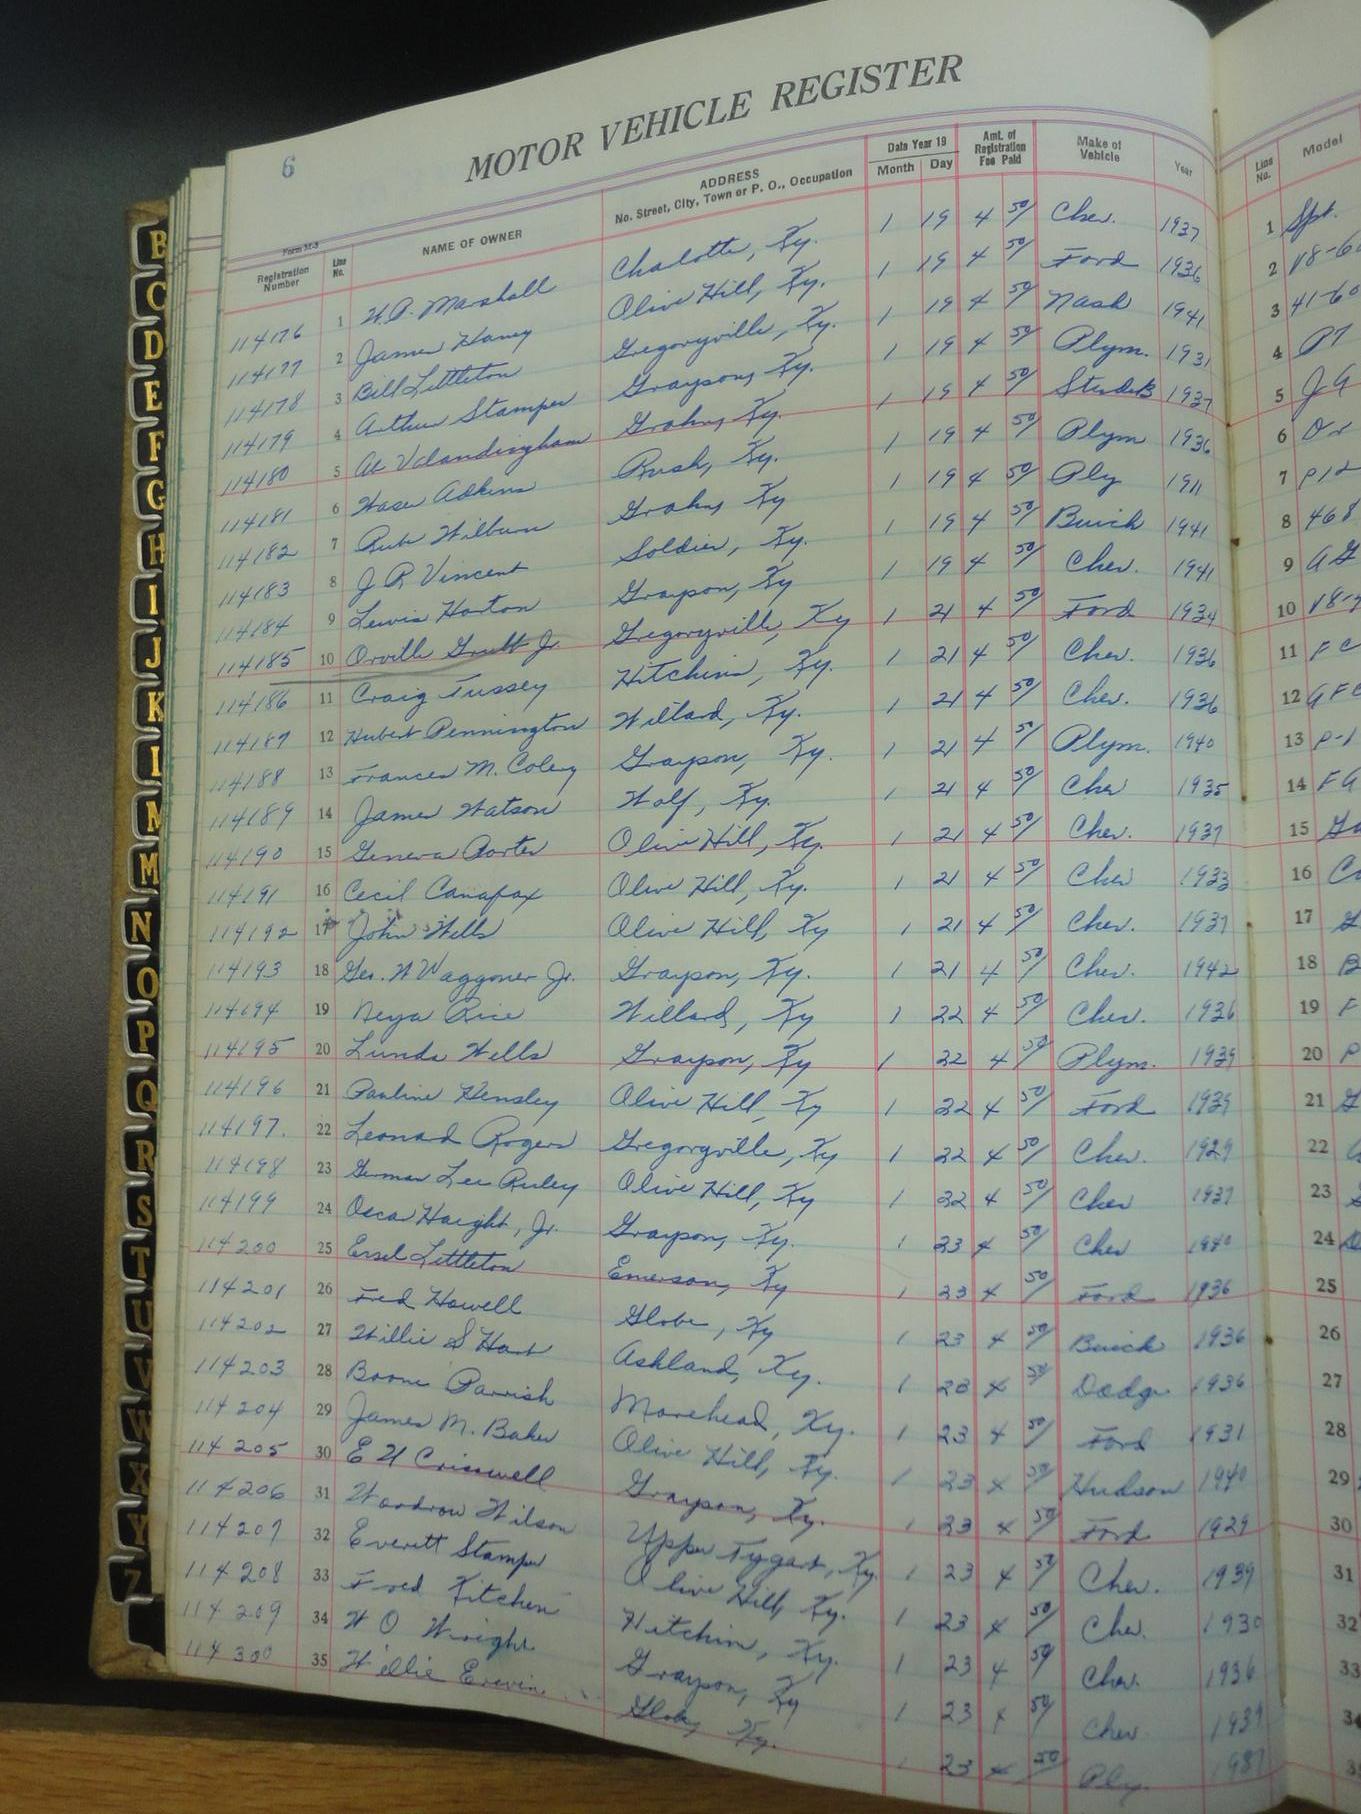 6
MOTOR VEHICLE REGISTER
Form M-3
Registration Number Line No. NAME OF OWNER ADDRESS No. Street, City, Town or P. O., Occupation Date Year 19 Month Day Amt. of Registration Fee Paid Make of Vehicle Year Line No. Model
114176 1 W.A. Marshall Chalotte, Ky. 1 19 4 50/ Chev. 1937 1 Spt.
114177 2 James Haney Olive Hill, Ky. 1 19 4 50/ Ford 1936 2 V8-6
114178 3 Bill Littleton Gregoryville, Ky. 1 19 4 50/ Nash 1941 3 41-60
114179 4 Arthur Stamper Grayson, Ky. 1 19 4 50/ Plym. 1931 4
114180 5 Al Valandingham Grahn, Ky. 1 19 4 50/ StudeB 1937 5
114181 6 Adkins Rush, Ky. 1 19 4 50/ Plym 1936 6
114182 7 Rube Wilburn Grahn, Ky 1 19 4 50/ Ply 7 P12
114183 8 J R Vincent Soldier, Ky. 1 19 4 50/ Buick 1941 8 468
114184 9 Lewis Horton Grayson, Ky 1 19 4 50/ Chev. 1941 9 AG
114185 10 Orville Jr. Gregoryville, Ky 1 21 4 50/ Ford 1934 10 V8-
114186 11 Craig Tussey Hitchins, Ky. 1 21 4 50/ Chev. 1936 11 FC
114187 12 Hubert Pennington Willard, Ky. 1 21 4 50/ Chev. 1936 12
114188 13 Frances M. Coley Grayson, Ky. 1 21 4 50/ Plym. 1940 13 P-1
114189 14 James Watson Wolf, Ky. 1 21 4 50/ Chev 1935 14 FA
114190 15 Geneva Porter Olive Hill, Ky. 1 21 4 50/ Chev. 1937 15
114191 16 Cecil Canafax Olive Hill, Ky. 1 21 4 50/ Chev 1933 16
114192 17 John Wells Olive Hill, Ky 1 21 4 50/ Chev. 1937 17
114193 18 Geo. W Waggoner Jr. Grayson, Ky. 1 21 4 50/ Chev. 1942 18 B
114194 19 Rice Willard, Ky 1 22 4 50/ Chev. 1936 19 F
114195 20 Lunda Wells Grayson, Ky 1 22 4 50/ Plym. 1939 20 P
114196 21 Pauline Hensley Olive Hill, Ky 1 22 4 50/ Ford 1939 21
114197. 22 Leonard Rogers Gregoryville, Ky 1 22 4 50/ Chev. 1929 22
114198 23 German Lee Olive Hill, Ky 1 22 4 50/ Chev 1937 23
114199 24 Oscar Haight, Jr. Grayson, Ky. 1 23 4 50/ Chev 1940 24
114200 25 Ersel Littleton Emerson, Ky 1 23 4 50/ Ford 1936 25
114201 26 Fred Howell Globe, Ky 1 23 4 50/ Buick 1936 26
114202 27 Willie S Hart Ashland, Ky. 1 23 4 50/ Dodge 1936 27
114203 28 Boone Parrish Morehead, Ky. 1 23 4 50/ Ford 1931 28
114204 29 James M. Baker Olive Hill, Ky. 1 23 4 50/ Hudson 1940 29
114205 30 E H Crisswell Grayson, Ky. 1 23 4 50/ Ford 1929 30
114206 31 Woodrow Wilson Upper Tygart, Ky. 1 23 4 50/ Chev. 1939 31
114207 32 Everett Stamper Olive Hill, Ky. 1 23 4 50/ Chev. 1930 32
114208 33 Fred Kitchen Hitchins, Ky. 1 23 4 50/ Chev. 1936 33
114209 34 W O Wright Grayson, Ky 1 23 4 50/ Chev 1939 34
114300 35 Willie Ervin Globe, Ky. 1 23 4 50/ Ply. 1937
B
C
D
E
F
G
H
I
J
K
M
M
N
O
P
Q
R
S
T
U
V
W
X
Y
Z